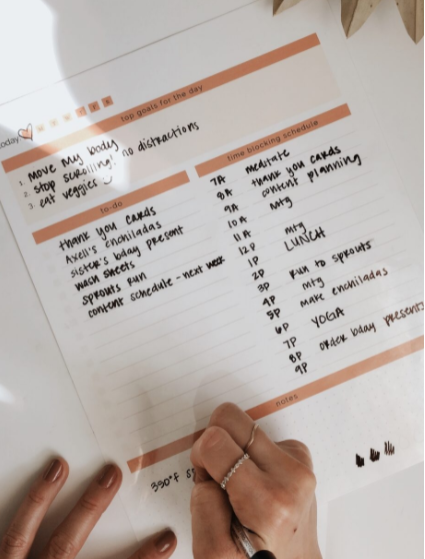 today
top goals for the day
1. move my body
2. stop scrolling! no distractions
3. eat veggies
to-do
thank you cards
Axell's enchiladas
sister's bday present
wash sheets
sprouts run
content schedule - next week
time blocking schedule
7A meditate
8A thank you cards
9A content planning
10A mtg
11A
12P mtg
1P LUNCH
2P
3P run to sprouts
4P mtg
5P make enchiladas
6P YOGA
7P
8P order bday presents
9P
notes
350°F